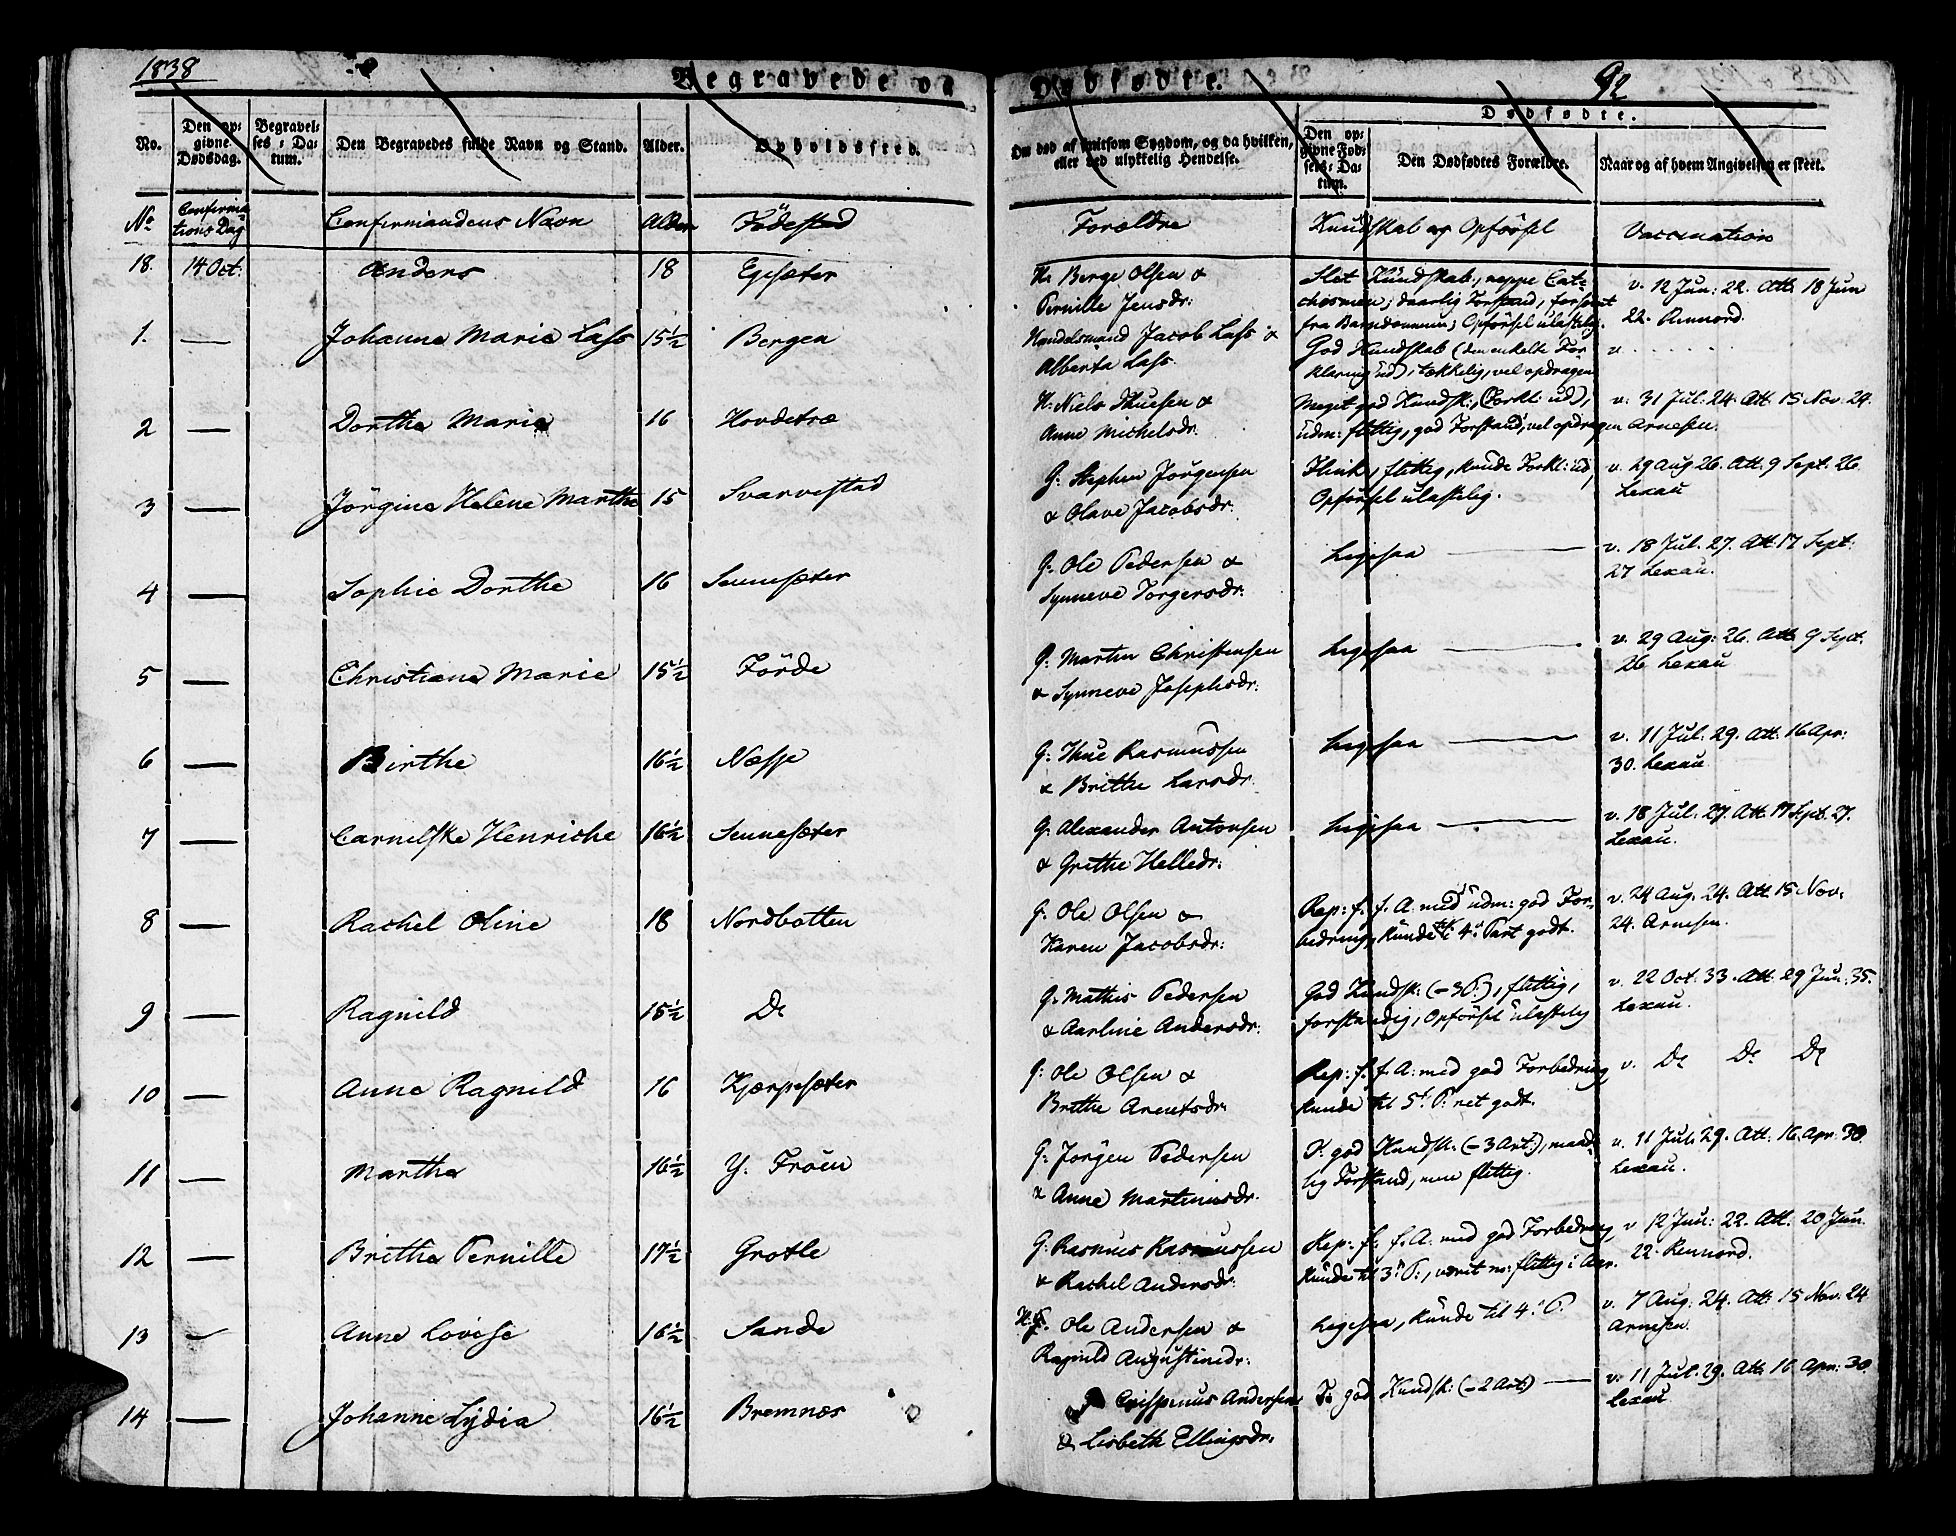 1838
Begravede og Dødfødte.
92
No.
Den opgivne Dødsdag.
Begravelses-Datum.
Den Begravedes fulde Navn og Stand.
Alder.
Opholdssted.
Om død af smitsom Sygdom, og da hvilken, eller ved ulykkelig Hendelse.
Dødfødte.
Den opgivne Fødsels-Datum.
Den Dødfødtes Forældre.
Naar og af hvem Angivelsen er skeet.
No Confirmations Dag Confirmandens Navn Alder Födested Forældre Kundskab og Opförsel Vaccination
18. 14 Oct: Anders 18 Egesæter H: Berge Olsen & Slet Kundskab, neppe Cat- v. 12 Jun: 22. Att: 18 Jun
Pernille Jensdr: chesmen; daarlig Forstand, forsömt 22. Rennord.
fra Barndommen; Opförsel ulastelig.
1. — Johanne Marie Lass 15½ Bergen Handelsmand Jacob Lass & God Kundskab (den enkelte For v. . . . . . .
Alberta Lass. klaring ud), tækkelig, vel opdragen
2 — Dorthe Marie 16 Hovdetræ H: Niels Thuesen & Meget god Kundsk:, (Forkl: ud), v: 31 Jul: 24. Att. 15 Nov. 24.
Anne Michelsdr. udm: flittig, god Forstand, vel opdragen Arnesen.
3 — Jörgine Helene Marthe 15 Svarvestad G: Stephen Jörgensen Flink, flittig, kunde Forkl: ud, v. 29 Aug 26. Att. 9 Sept. 26.
& Olave Jacobsdr: Opförsel ulastelig. Lexau
4 — Sophie Dorthe 16 Sennesæter G: Ole Pedersen & Ligesaa — v. 18 Jul. 27. Att. 17 Sept:
Synneve Torgersdr: 27 Lexau.
5 — Christiane Marie 15½ Förde G: Martin Christensen Ligesaa — v. 29 Aug: 26. Att. 9 Sept.
& Synneve Josephsdr: 26. Lexau
6 — Birthe 16½ Næsje G: Thue Rasmussen Ligesaa — v. 11 Jul: 29. Att. 16 Apr:
& Brithe Larsdr. 30. Lexau.
7 — Carnilske Henriche 16½ Sennesæter G: Alexander Antonsen Ligesaa — v. 18 Jul: 27. Att. 17 Sept. 27.
& Grethe Helledr: Lexau.
8 — Rachel Oline 18 Nordbotten G: Ole Olsen & Rep: f. f. A: med udm: god For- v. 24 Aug. 24. Att. 15 Nov:
Karen Jacobsdr: bedring, kunde til 4: Part godt. 24. Arnesen.
9 — Ragnild 15½ Do G: Mathis Pedersen God Kundsk: (-3 P:), flittig, v. 22 Oct: 33. Att. 29 Jun: 35.
& Aarline Andersdr: forstandig, Opförsel ulastelig Lexau.
10 — Anne Ragnild 16 Kjærpesæter G: Ole Olsen & Rep: f. f. A: med god Forbedring v. Do Do Do
Brithe Arentsdr: kunde til 5: P: ret godt.
11 — Marthe 16½ Y. Fröen G: Jörgen Pedersen T. god Kundsk: (-3 Art:), maade- v. 11 Jul: 29. Att. 16. Apr: 30
& Anne Martinusdr. lig Forstand, men flittig. Lexau.
12 — Brithe Pernille 17½ Grotle G: Rasmus Rasmussen Rep: f. f. A: med god Forbedring, v 12 Jun: 22. Att. 20 Jun.
& Rachel Andersdr: kunde til 3: P:, været m: flittig i Aar. 22. Rennord.
13 — Anne Lovise 16½ Sande Ole Andersen & Ligesaa, kunde til 4: P. v. 7 Aug: 24. Att. 15 Nov. 24
Ragnild Augustinedr: Arnesen.
14 — Johanne Lydia 16½ Bremnæs Crispinus Andersen T. god Kundsk: (-2 Art) — v: 11 Jul. 29. Att. 16 Apr: 30.
& Lisbeth Ellingsdr: Lexau.